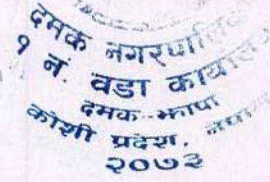 दमक नगरपालिका
१ नं. वडा कार्यालय
दमक - झापा
कोशी प्रदेश, नेपाल
२०७३